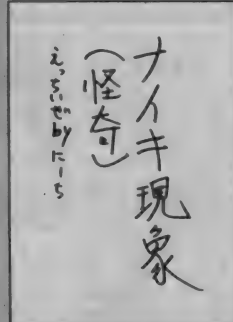 ナイキ現象
（怪奇）
えっちいぜbyにーち